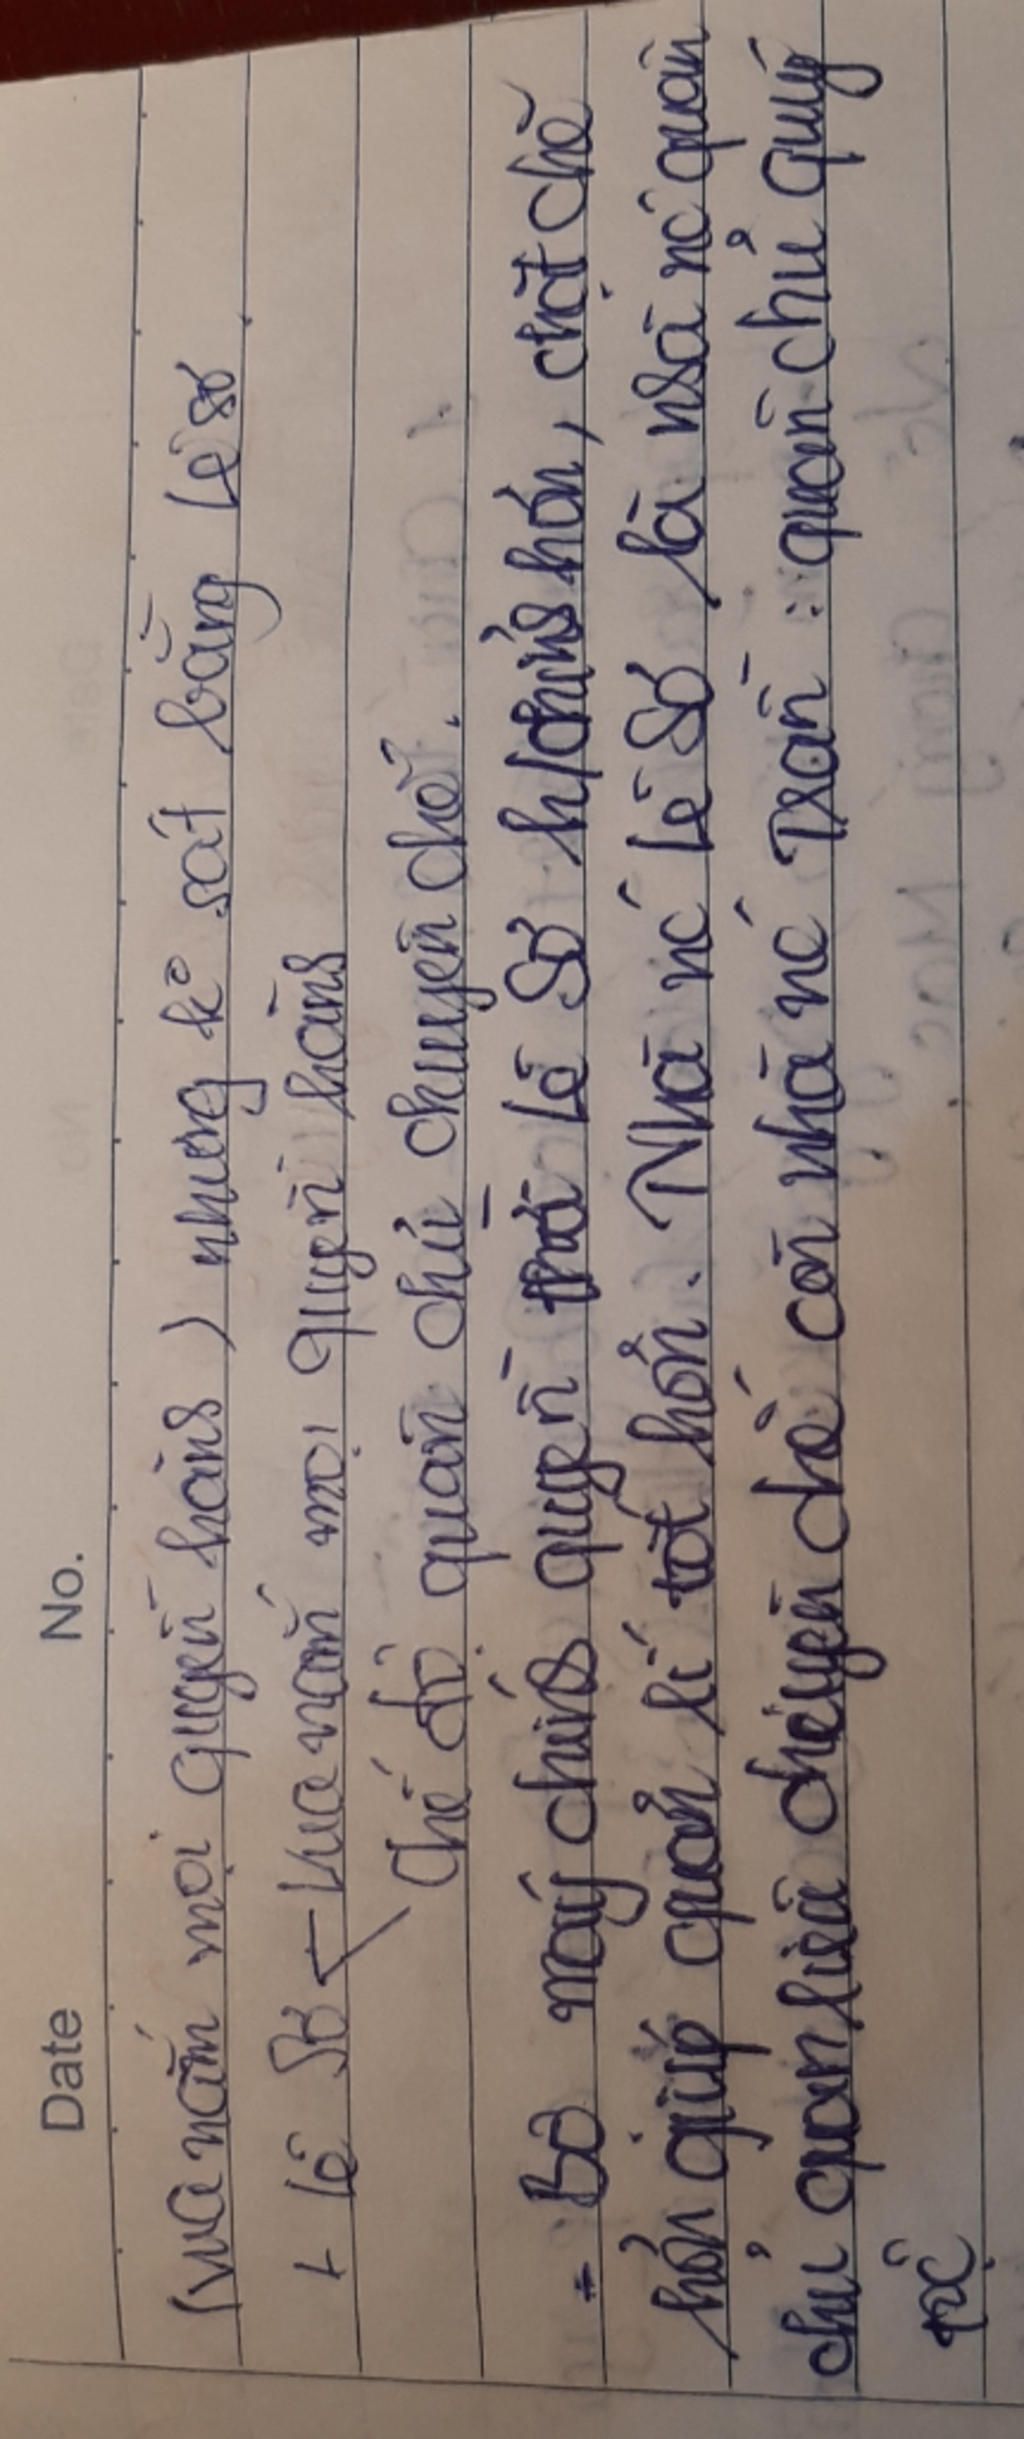 Date No.
(vua nắm mọi quyền hành) nhưng kº sát bằng Lê sơ
+ Lê Sơ - Vua nắm mọi quyền hành
Chế độ quân chủ chuyên chế.
= Bộ máy chính quyền thời Lê Sơ h/chỉnh hơn, chặt chẽ
hơn giúp quản lí tốt hơn. Nhà nc Lê Sơ là nhà nc quân
chủ quan liêu chuyên chế còn nhà nc Trần: quân chủ quý
tộc